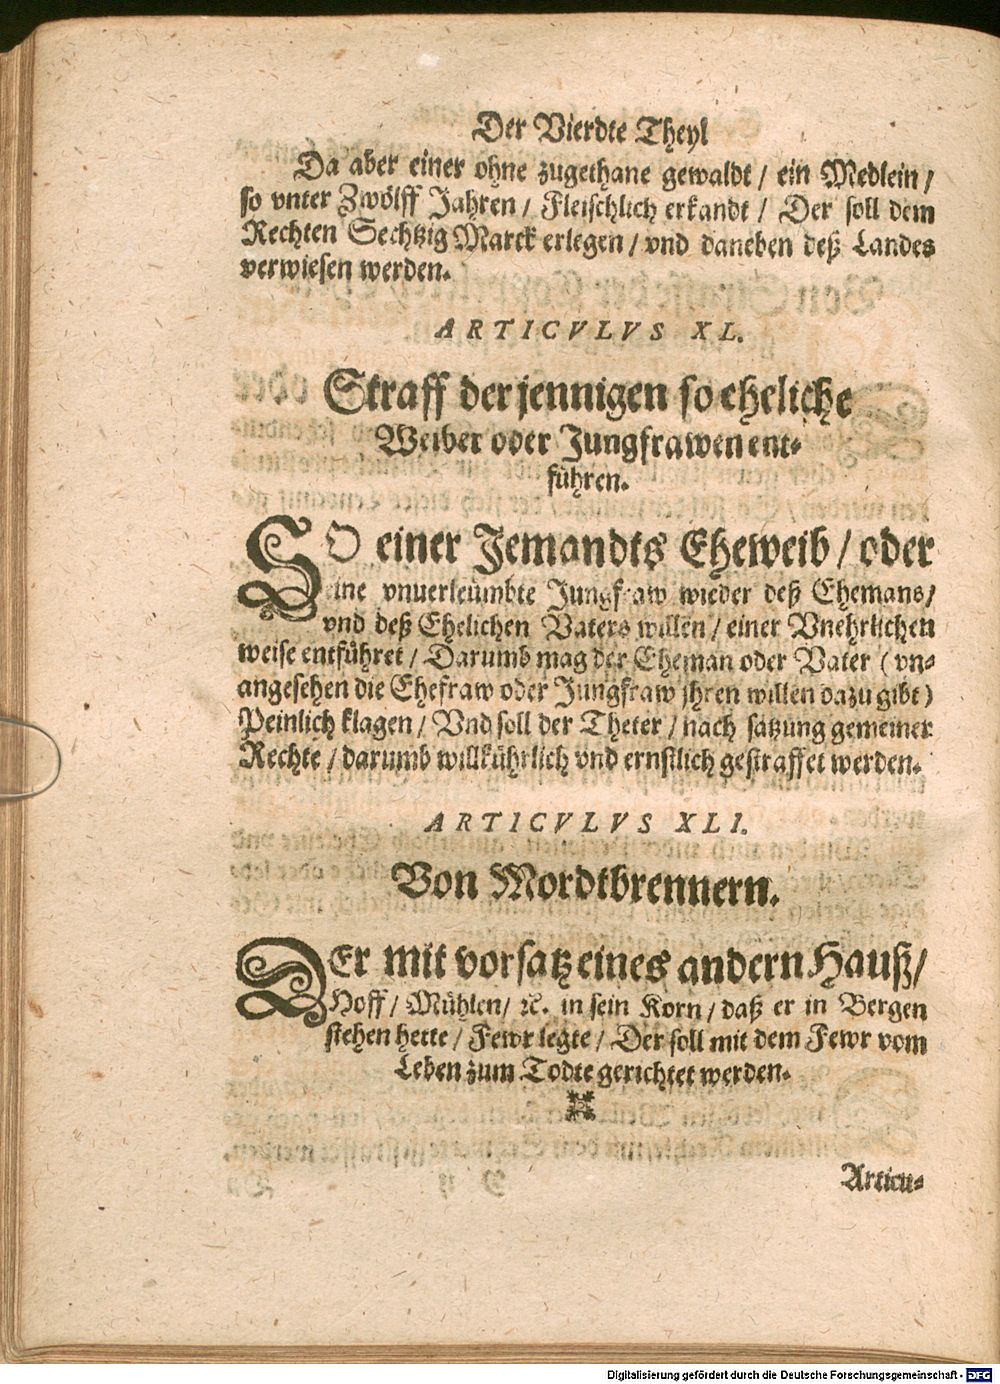 Der Vierdte Theyl
Da aber einer ohne zugethane gewaldt / ein Medlein /
so vnter Zwölff Jahren / Fleischlich erkandt / Der soll dem
Rechten Sechtzig Marck erlegen / vnd daneben deß Landes
verwiesen werden.
ARTICVLVS XL.
Straff der jennigen so eheliche
Weiber oder Jungfrawen ent-
führen.
SO einer Jemandts Eheweib / oder
eine vnuerleümbte Jungfraw wieder deß Ehemans /
vnd deß Ehelichen Vaters willen / einer Vnehrlichen
weise entführet / Darumb mag der Eheman oder Vater ( vn-
angesehen die Ehefraw oder Jungfraw jhren willen dazu gibt )
Peinlich klagen / Vnd soll der Theter / nach satzung gemeiner
Rechte / darumb willkührlich vnd ernstlich gestraffet werden.
ARTICVLVS XLI.
Von Mordtbrennern.
DEr mit vorsatz eines andern Hauß /
Hoff / Mühlen / ꝛc. in sein Korn / daß er in Bergen
stehen hette / Fewr legte / Der soll mit dem Fewr vom
Leben zum Todte gerichtet werden.
Articu-
Digitalisierung gefördert durch die Deutsche Forschungsgemeinschaft - DFG